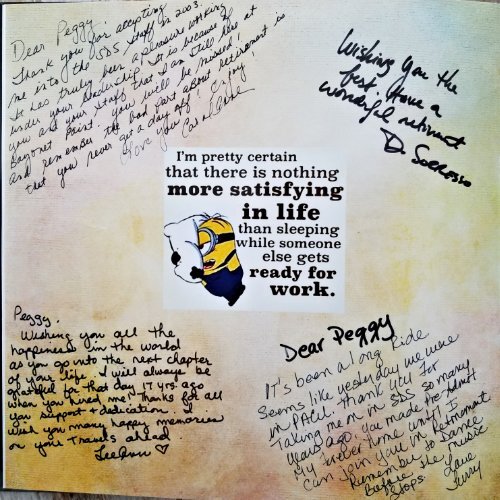 Dear Peggy,
Thank you for accepting
me into the SDS staff in 2003.
It has truly been a pleasure working
under your leadership. It is because of
you and your staff that I am still here at
Bayonet Point. You will be missed!
and remember the bad part about retirement is
that you never get a day off! Enjoy!
Love you
Wishing You the
best. Have a
wonderful retirment
Dr
I'm pretty certain
that there is nothing
more satisfying
in life
than sleeping
while someone
else gets
ready for
work.
Peggy,
Wishing you all the
happiness in the world
as you go into the next chapter
of your life. I will always be
grateful for that day 17 yrs. ago
when you hired me! Thanks for all
you support + dedication. I
wish you many happy memories
on your Travels ahead.
LeeAnn
Dear Peggy
It's been a long ride
Seems like yesterday we were
in PACU. Thank you for
Taking me in SDS so many
years ago. You made me
My forever home until I
can join you in Retirement
Remember to Dance
Before the music
Stops. Love
Terry